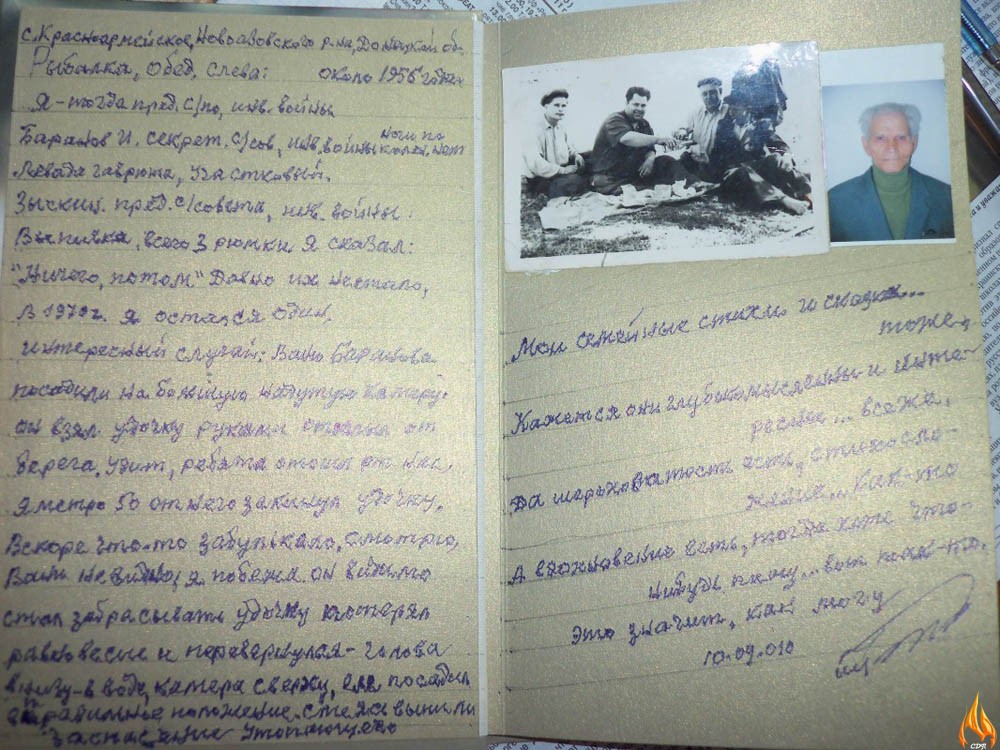 с. Красноармейское, Новоазовского р-на, Донецкой об.
Рыбалка, Обед, Слева: около 1956 года
Я - тогда пред. С/по, инв. войны
Баранов И. секрет. С/сов, инв. войны ноги по колен. нет
Левада Гаврюша, Участковый.
Зыскин. пред. С/совета, инв. войны.
Выпивка, всего 3 рюмки я сказал:
"Ничего, потом" Давно их не стало,
В 1979г. Я остался Один,
интересный случай: Ваню Баранова
посадили на большую надутую камеру.
он взял удочку руками отплыл от
берега. Удит, ребята отошли от них,
я метро 50 от него закинул удочку.
Вскоре что-то забулькало, смотрю,
Вани не видно, я побежал он видимо
стал забрасывать удочку потерял
равновесие и перевернулся - голова
внизу - в воде, камера сверху, еле посадил
в правильное положение. Стежа выпили
за спасение утопающего
Мои семейные стихи и сказки...
тоже,
Кажется они глубокомысленны и инте-
ресные... всеже,
Да шероховатость есть, стихосло-
жение... как-то
А вдохновение есть, тогда хоте что-
нибудь пишу... вот так-то.
Это значит, как могу
10.09.010
CDR